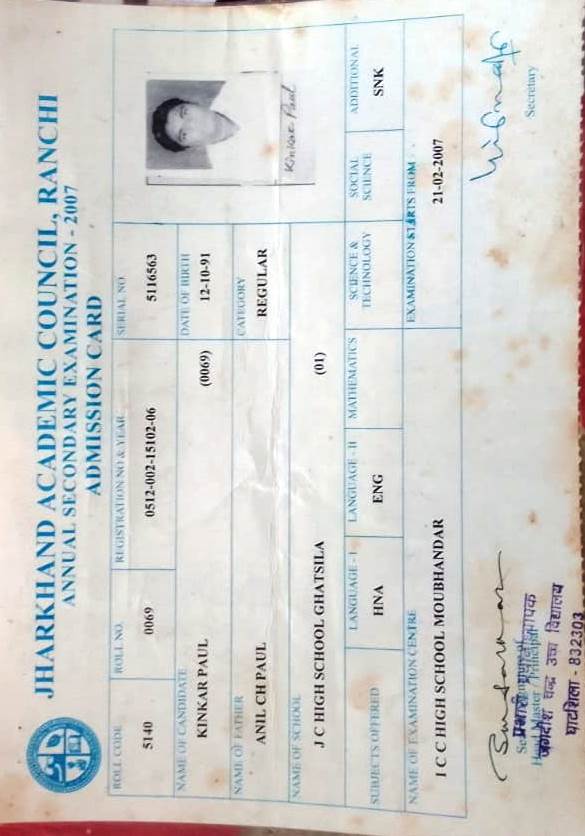 JHARKHAND ACADEMIC COUNCIL, RANCHI
ANNUAL SECONDARY EXAMINATION - 2007
ADMISSION CARD
ROLL CODE ROLL NO. REGISTRATION NO & YEAR SERIAL NO.
5140 0069 0512-002-15102-06 5116563
NAME OF CANDIDATE DATE OF BIRTH
KINKAR PAUL (0069) 12-10-91
NAME OF FATHER CATEGORY
ANIL CH PAUL REGULAR
Kinkar Paul
NAME OF SCHOOL
J C HIGH SCHOOL GHATSILA (01)
SUBJECTS OFFERED LANGUAGE - I LANGUAGE - II MATHEMATICS SCIENCE & TECHNOLOGY SOCIAL SCIENCE ADDITIONAL
HNA ENG SNK
NAME OF EXAMINATION CENTRE EXAMINATION STARTS FROM
I C C HIGH SCHOOL MOUBHANDAR 21-02-2007
Secretary
जगदीश चन्द्र उच्च विद्यालय
घाटशिला - 832303